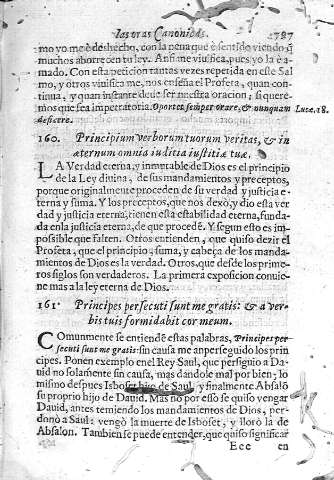 las oras Canonicas. 787
mo yo me è deshecho, con la pena que è sentido viendo q̃
muchos aborrecen tu ley. Ansi me viuifica, pues yo la è a-
mado. Con esta peticion tantas vezes repetida en este Sal
mo, y otros viuifica me, nos enseña el Profeta, quan con-
tinua, y quan instante deue ser nuestra oracion; si quere-
mos que sea impetratoria. Oportet semper orare, & nunquam Lucæ. 18.
deficere.
160. Principium verborum tuorum veritas, & in
æternum omnia iuditia iustitiæ tuæ.
LA Verdad eterna, y inmutable de Dios es el principio
de la Ley diuina, de sus mandamientos y preceptos,
porque originalmente proceden de su verdad y justicia e-
terna y suma. Y los preceptos, que nos dexò, y dio esta ver
dad y justicia eterna; tienen esta estabilidad eterna, funda-
da en la justicia eterna, de que procedē. Y segun esto es im-
possible que falten. Otros entienden, que quiso dezir el
Profeta, que el principio; suma, y cabeça de los manda-
mientos de Dios es la verdad. Otros, que desde los prime-
ros siglos son verdaderos. La primera exposicion conuie-
ne mas a la ley eterna de Dios.
161. Principes persecuti sunt me gratis: & a ver-
bis tuis formidabit cor meum.
COmunmente se entiendē estas palabras, Principes per-
secuti sunt me gratis: sin causa me an perseguido los prin-
cipes. Ponen exemplo en el Rey Saul, que persiguio a Da-
uid no solamente sin causa, mas dandole mal por bien: lo
mismo despues Isboset hijo de Saul, y finalmente Absalō
su proprio hijo de Dauid. Mas no por esso se quiso vengar
Dauid, antes temiendo los mandamientos de Dios, per-
donò a Saul: vengò la muerte de Isboset, y llorò la de
Absalon. Tambien se puede entender, que quiso significar
Eee en